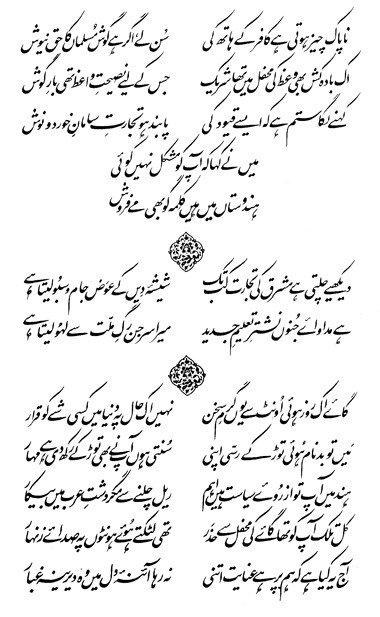 ناپاک چیز ہوتی ہے کافر کے ہاتھ کی سُن لے اگر ہے گوش مسلماں کا حق نیوش
اک بادہ کش بھی وعظ کی محفل میں تھا شریک جس کے لیے نصیحتِ واعظ تھی بارِ گوش
کہنے لگا ستم ہے کہ ایسے قیود کی پابند ہو تجارتِ سامانِ خورد و نوش
میں نے کہا کہ آپ کو مشکل نہیں کوئی
ہندوستاں میں ہیں کلمہ گو بھی مے فروش
دیکھیے چلتی ہے مشرق کی تجارت کب تک شیشۂ دیں کے عوض جام و سبو لیتا ہے
ہے مداوائے جنُوں نشترِ تعلیمِ جدید میرا سرجن رگِ ملّت سے لہُو لیتا ہے
گائے اک روز ہوئی اُونٹ سے یوں گرمِ سخن نہیں اک حال پہ دنیا میں کسی شے کو قرار
مَیں تو بدنام ہوئی توڑ کے رسّی اپنی سُنتی ہوں آپ نے بھی توڑ کے رکھ دی ہے مہار
ہند میں آپ تو از رُوئے سیاست ہیں اہم ریل چلنے سے مگر دشتِ عرب میں بیکار
کل تلک آپ کو تھا گائے کی محفل سے حذر تھی لٹکتے ہوئے ہونٹوں پہ صدائے زنہار
آج یہ کیا ہے کہ ہم پر ہے عنایت اتنی نہ رہا آئنۂ دل میں وہ دیرینہ غبار